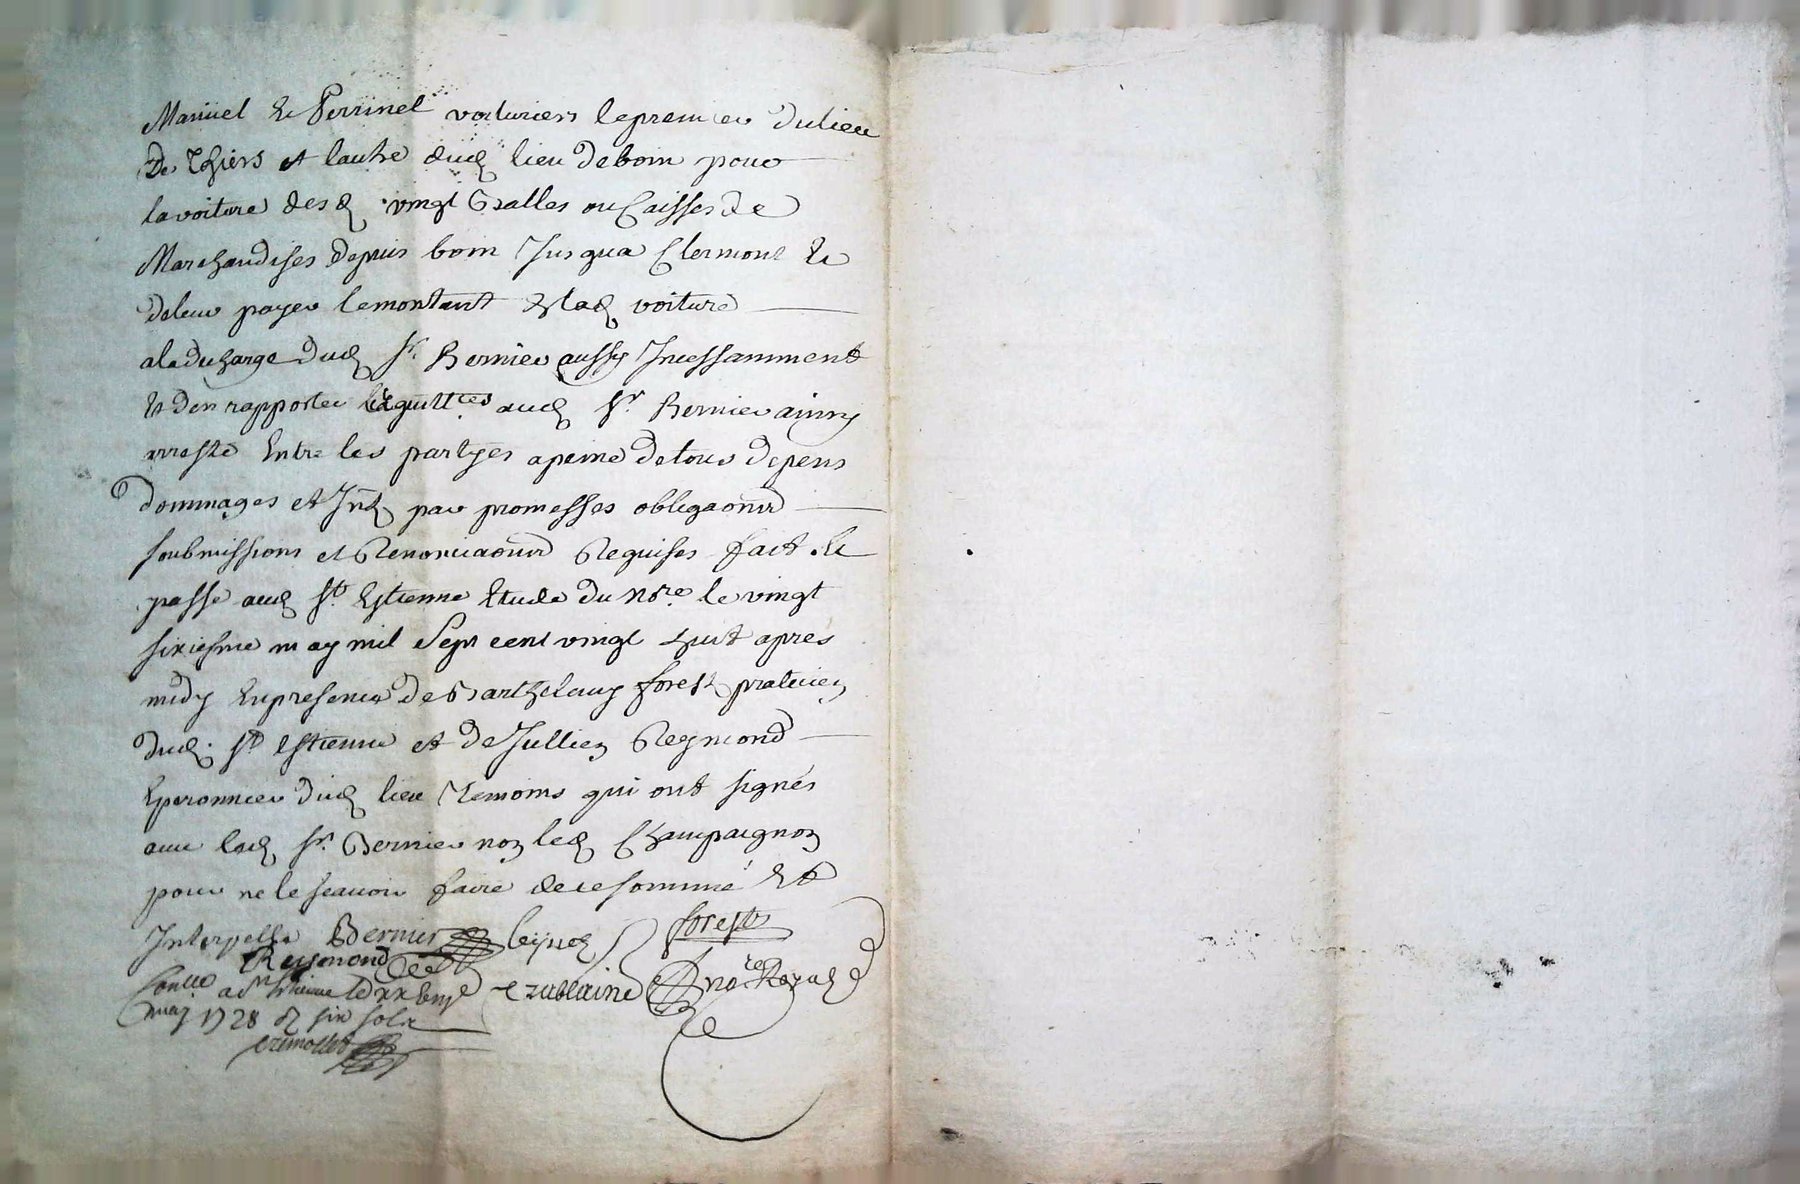 Manuel Et Perrinel voituriers le premier du lieu
De Thiers et lautre dud lieu de boin pour
la voiture desd vingt Balles ou Caisses de
Marchandises depuis boin Jusqua Clermont Et
de leur payer le montant de lad voiture
a la decharge dud Sr. Bernier aussy Incessamment
Et den rapporter les quittces aud Sr Bernier ainsy
arresté Entre les partyes a peine de tous depens
dommages et Intz par promesses obligaons
soubmissions et Renonciaons Requises fait Et
passé aud St. Estienne Etude du Nore le vingt
sixiesme may mil Sept cent vingt huit apres
midy En presence de Barthelemy forest praticien
dud. St Estienne et de Jullien Reymond
Eperonnier dud lieu Temoins qui ont signés
avec led Sr. Bernier non led Champagnon
pour ne le scavoir faire de ce sommé Et
Interpellé Bernier forest
Reymond
Conlle a St Estienne le xxbiie nore Royal
may 1728 R six sols